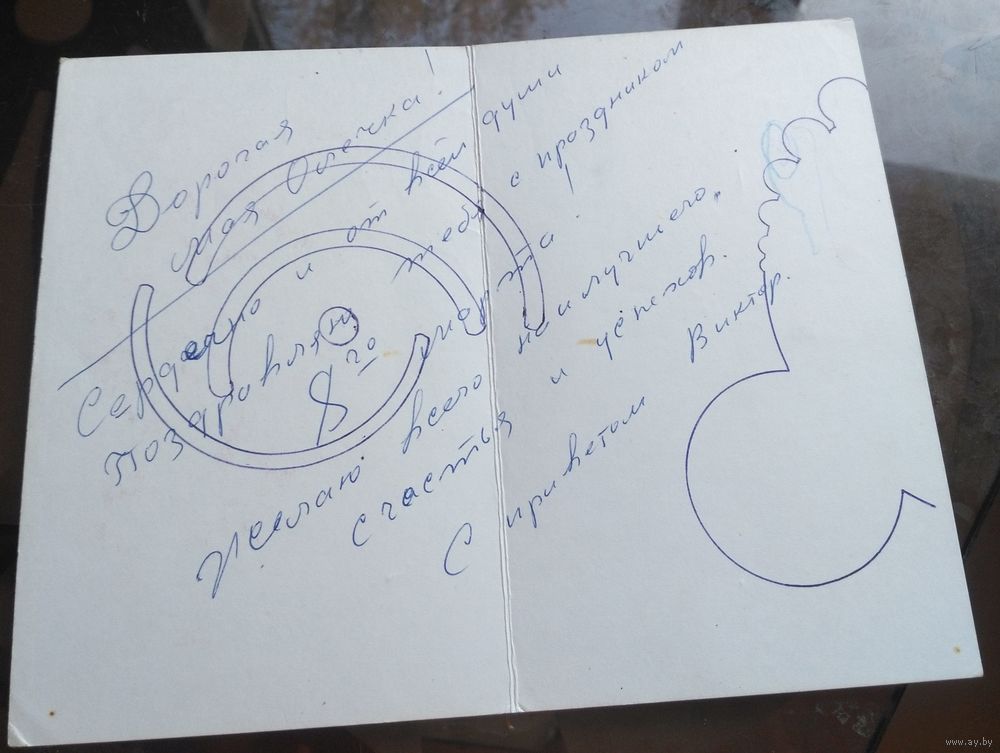 Дорогая
моя Олечка!
Сердечно и от всей души
поздравляю тебя с праздником
8го марта!
Желаю всего наилучшего,
счастья и успехов.
С приветом Виктор.
www.ay.by